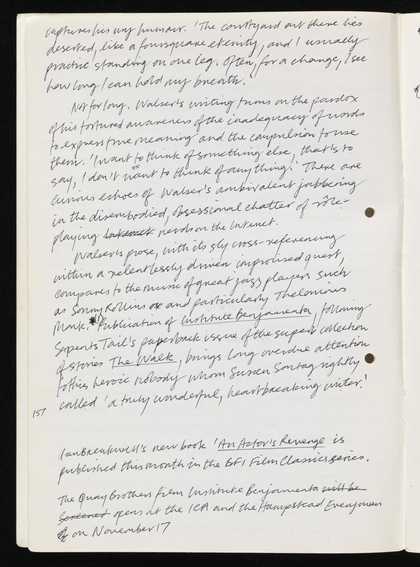 captures his wry humour. 'The courtyard out there lies
deserted, like a foursquare eternity, and I usually
practise standing on one leg. Often, for a change, I see
how long I can hold my breath.'
Not for long. Walser's writing turns on the paradox
of his tortured awareness of the inadequacy of words
to express true meaning and the compulsion to use
them. 'I want to think of something else, that is to
say, I don't want to think of anything.' There are
curious echoes of Walser's ambivalent jabbering
in the disembodied, obsessional chatter of role-
playing Internet nerds on the Internet.
Walser's prose, with its sly cross-referencing
within a relentlessly driven improvised quest,
compares to the music of great jazz players such
as Sonny Rollins or and particularly Thelonious
Monk. Publication of Institute Benjamenta, following
Serpents Tail's paperback issue of the superb collection
of stories The Walk, brings long overdue attention
to this heroic nobody whom Susan Sontag rightly
called 'a truly wonderful, heartbreaking writer.'
157
Ian Breakwell's new book 'An Actor's Revenge is
published this month in the BFI Film Classics series.
The Quay Brothers Film Institute Benjamenta will be
screened opens at the ICA and the Hampstead Everyman
on November 17